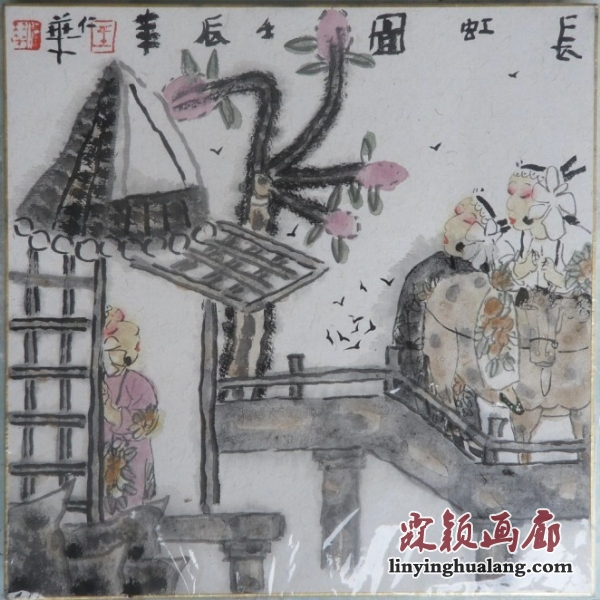 長虹圖壬辰仁華
霖颖画廊
linyinghualang.com